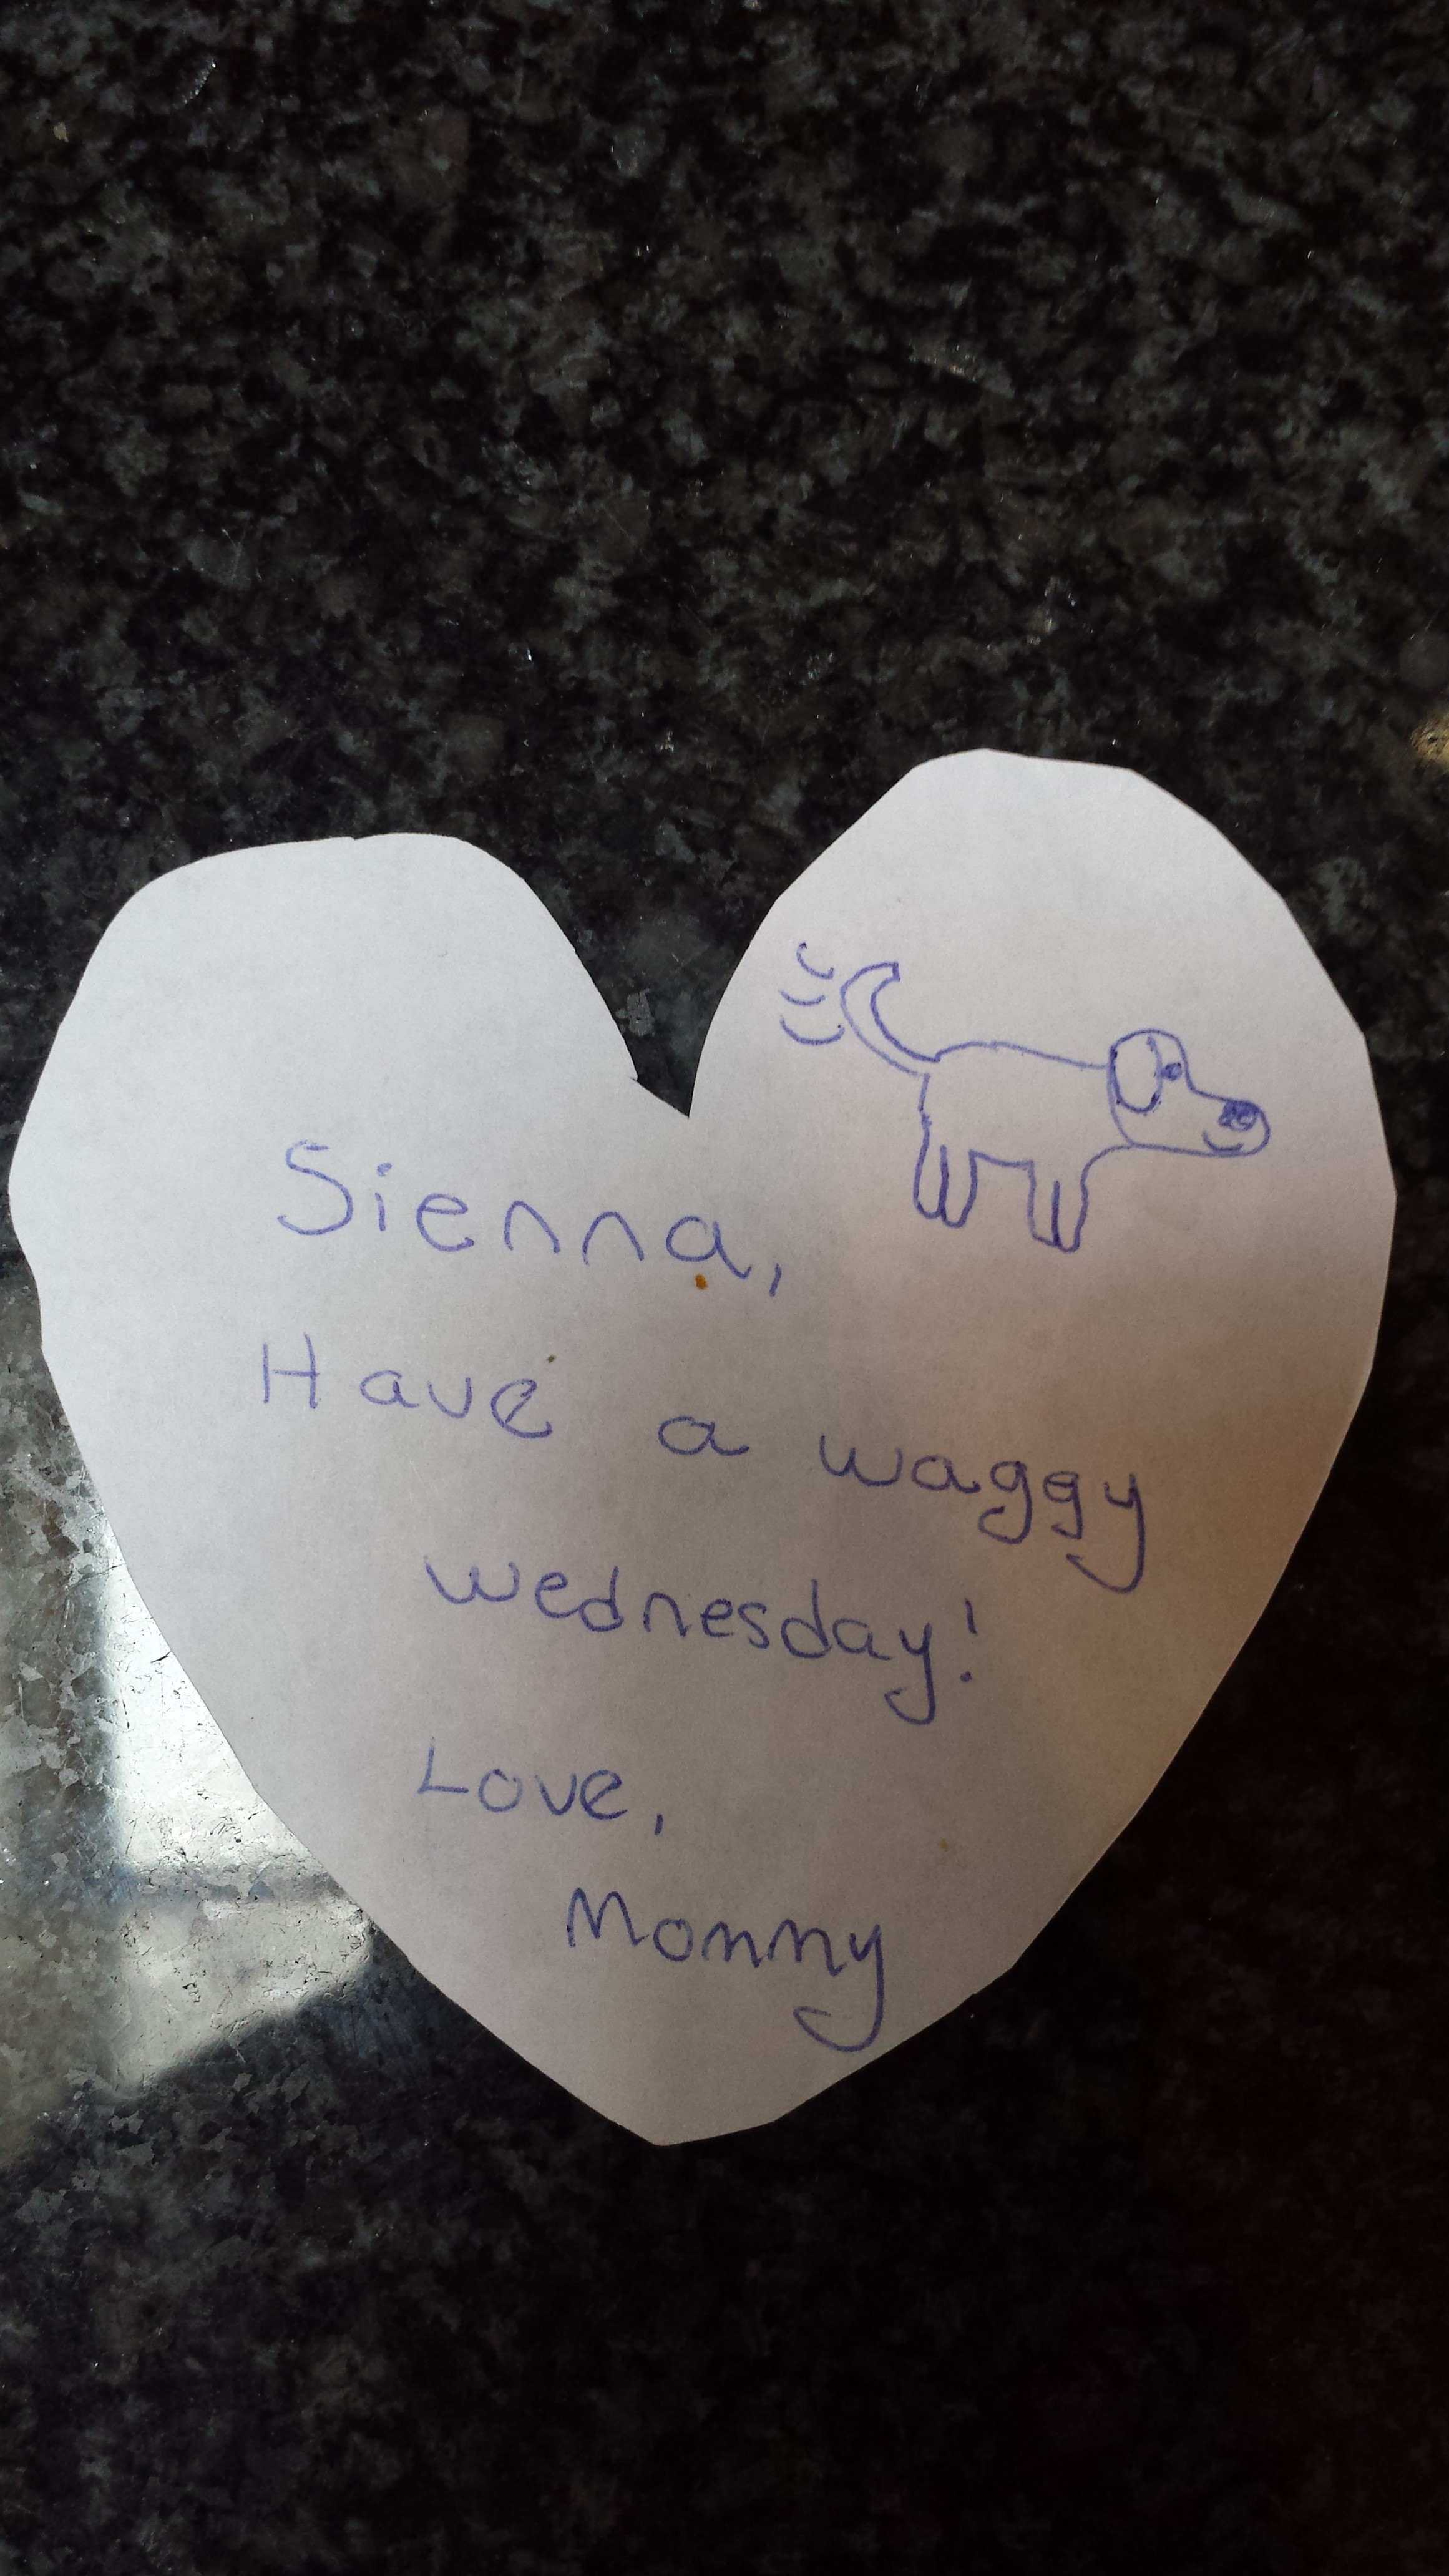 Sienna,
Have a waggy
wednesday!
Love,
Mommy